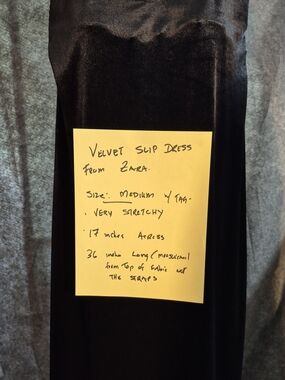 VELVET SLIP DRESS
FROM ZARA.
SIZE: MEDIUM Y TAG.
. VERY STRETCHY
17 inches ACROSS
36 inches long (measured
from Top of fabric not
THE STRAPS